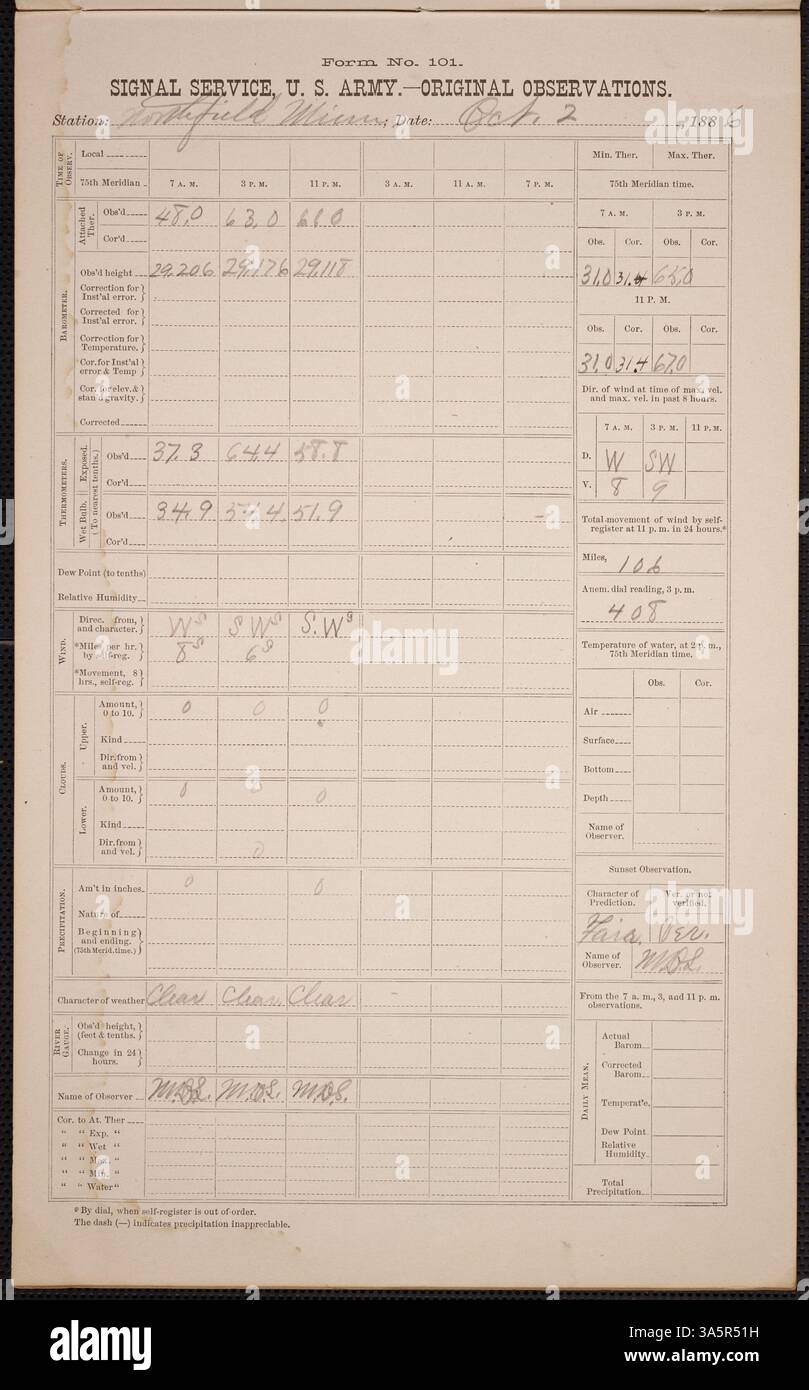 Form No. 101.
SIGNAL SERVICE, U. S. ARMY.—ORIGINAL OBSERVATIONS.
Station: Northfield Minn; Date: Oct. 2, 1886
TIME OF OBSERV.
Local
75th Meridian 7 A. M. 3 P. M. 11 P. M. 3 A. M. 11 A. M. 7 P. M.
BAROMETER.
Attached Ther.
Obs'd 48.0 63.0
Cor'd
Obs'd height 29.206 29.176 29.118
Correction for Inst'al error.
Corrected for Inst'al error.
Correction for Temperature.
Cor. for Inst'al error & Temp
Cor. for elev. & stand gravity.
Corrected
THERMOMETERS.
(To nearest tenths.)
Exposed.
Obs'd 37.3 64.4 58.8
Cor'd
Wet Bulb.
Obs'd 34.9 51.9
Cor'd
Dew Point (to tenths)
Relative Humidity
WIND.
Direc. from, and character. W S SW S S.W S
*Miles per hr. by self-reg. 8 S 6 S
*Movement, 8 hrs., self-reg.
CLOUDS.
Upper.
Amount, 0 to 10. 0 0 0
Kind
Dir. from and vel.
Lower.
Amount, 0 to 10. 0 0 0
Kind
Dir. from and vel. 0
PRECIPITATION.
Am't in inches. 0 0
Nature of
Beginning and ending. (75th Merid. time.)
Character of weather Clear Clear Clear
RIVER GAUGE.
Obs'd height, (feet & tenths.)
Change in 24 hours.
Name of Observer
Cor. to At. Ther
“ “ Exp. “
“ “ Wet “
“ “ Max. “
“ “ Min. “
“ “ Water “
* By dial, when self-register is out of order.
The dash (—) indicates precipitation inappreciable.
Min. Ther. Max. Ther.
75th Meridian time.
7 A. M. 3 P. M.
Obs. Cor. Obs. Cor.
31.0 31.4 65.0
11 P. M.
Obs. Cor. Obs. Cor.
31.0 31.4 67.0
Dir. of wind at time of max. vel. and max. vel. in past 8 hours.
7 A. M. 3 P. M. 11 P. M.
D. W SW
V. 8 9
Total movement of wind by self-register at 11 p. m. in 24 hours.*
Miles, 106
Anem. dial reading, 3 p. m.
408
Temperature of water, at 2 p. m., 75th Meridian time.
Obs. Cor.
Air
Surface
Bottom
Depth
Name of Observer.
Sunset Observation.
Character of Prediction. Ver. or not verified.
Fair. Ver.
Name of Observer.
From the 7 a. m., 3, and 11 p. m. observations.
DAILY MEAN.
Actual Barom.
Corrected Barom.
Temperat'e.
Dew Point.
Relative Humidity.
Total Precipitation.
alamy
Image ID: 3A5R51H
www.alamy.com